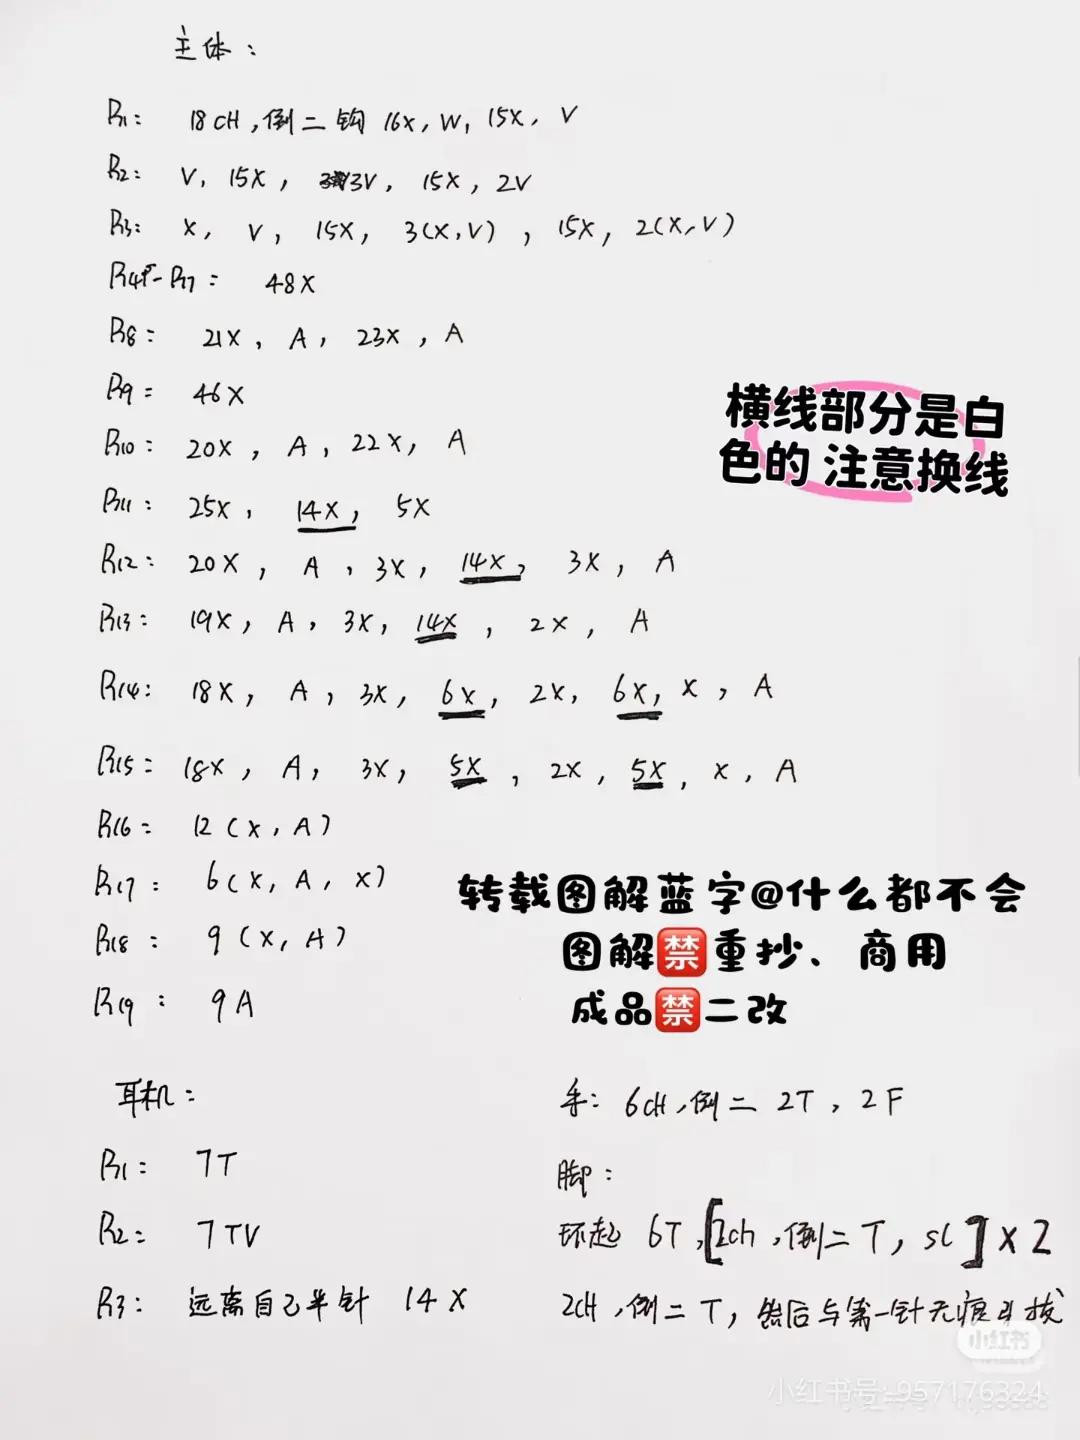 主体：
R1： 18CH，倒二钩 16X，W，15X，V
R2： V，15X，3V，15X，2V
R3： X，V，15X，3(X,V)，15X，2(X,V)
R4-R7： 48X
R8： 21X，A，23X，A
R9： 46X
横线部分是白
色的 注意换线
R10： 20X，A，22X，A
R11： 25X，14X，5X
R12： 20X，A，3X，14X，3X，A
R13： 19X，A，3X，14X，2X，A
R14： 18X，A，3X，6X，2X，6X，X，A
R15： 18X，A，3X，5X，2X，5X，X，A
R16： 12(X，A)
R17： 6(X，A，X)
R18： 9(X，A)
R19： 9A
转载图解蓝字@什么都不会
图解禁重抄、商用
成品禁二改
耳机：
R1： 7T
R2： 7TV
R3： 远离自己半针 14X
手：6CH，倒二 2T，2F
脚：
环起 6T，[2ch，倒二T，sl]×2
2CH，倒二T，然后与第一针无痕引拔
小红书
小红书号：957176324